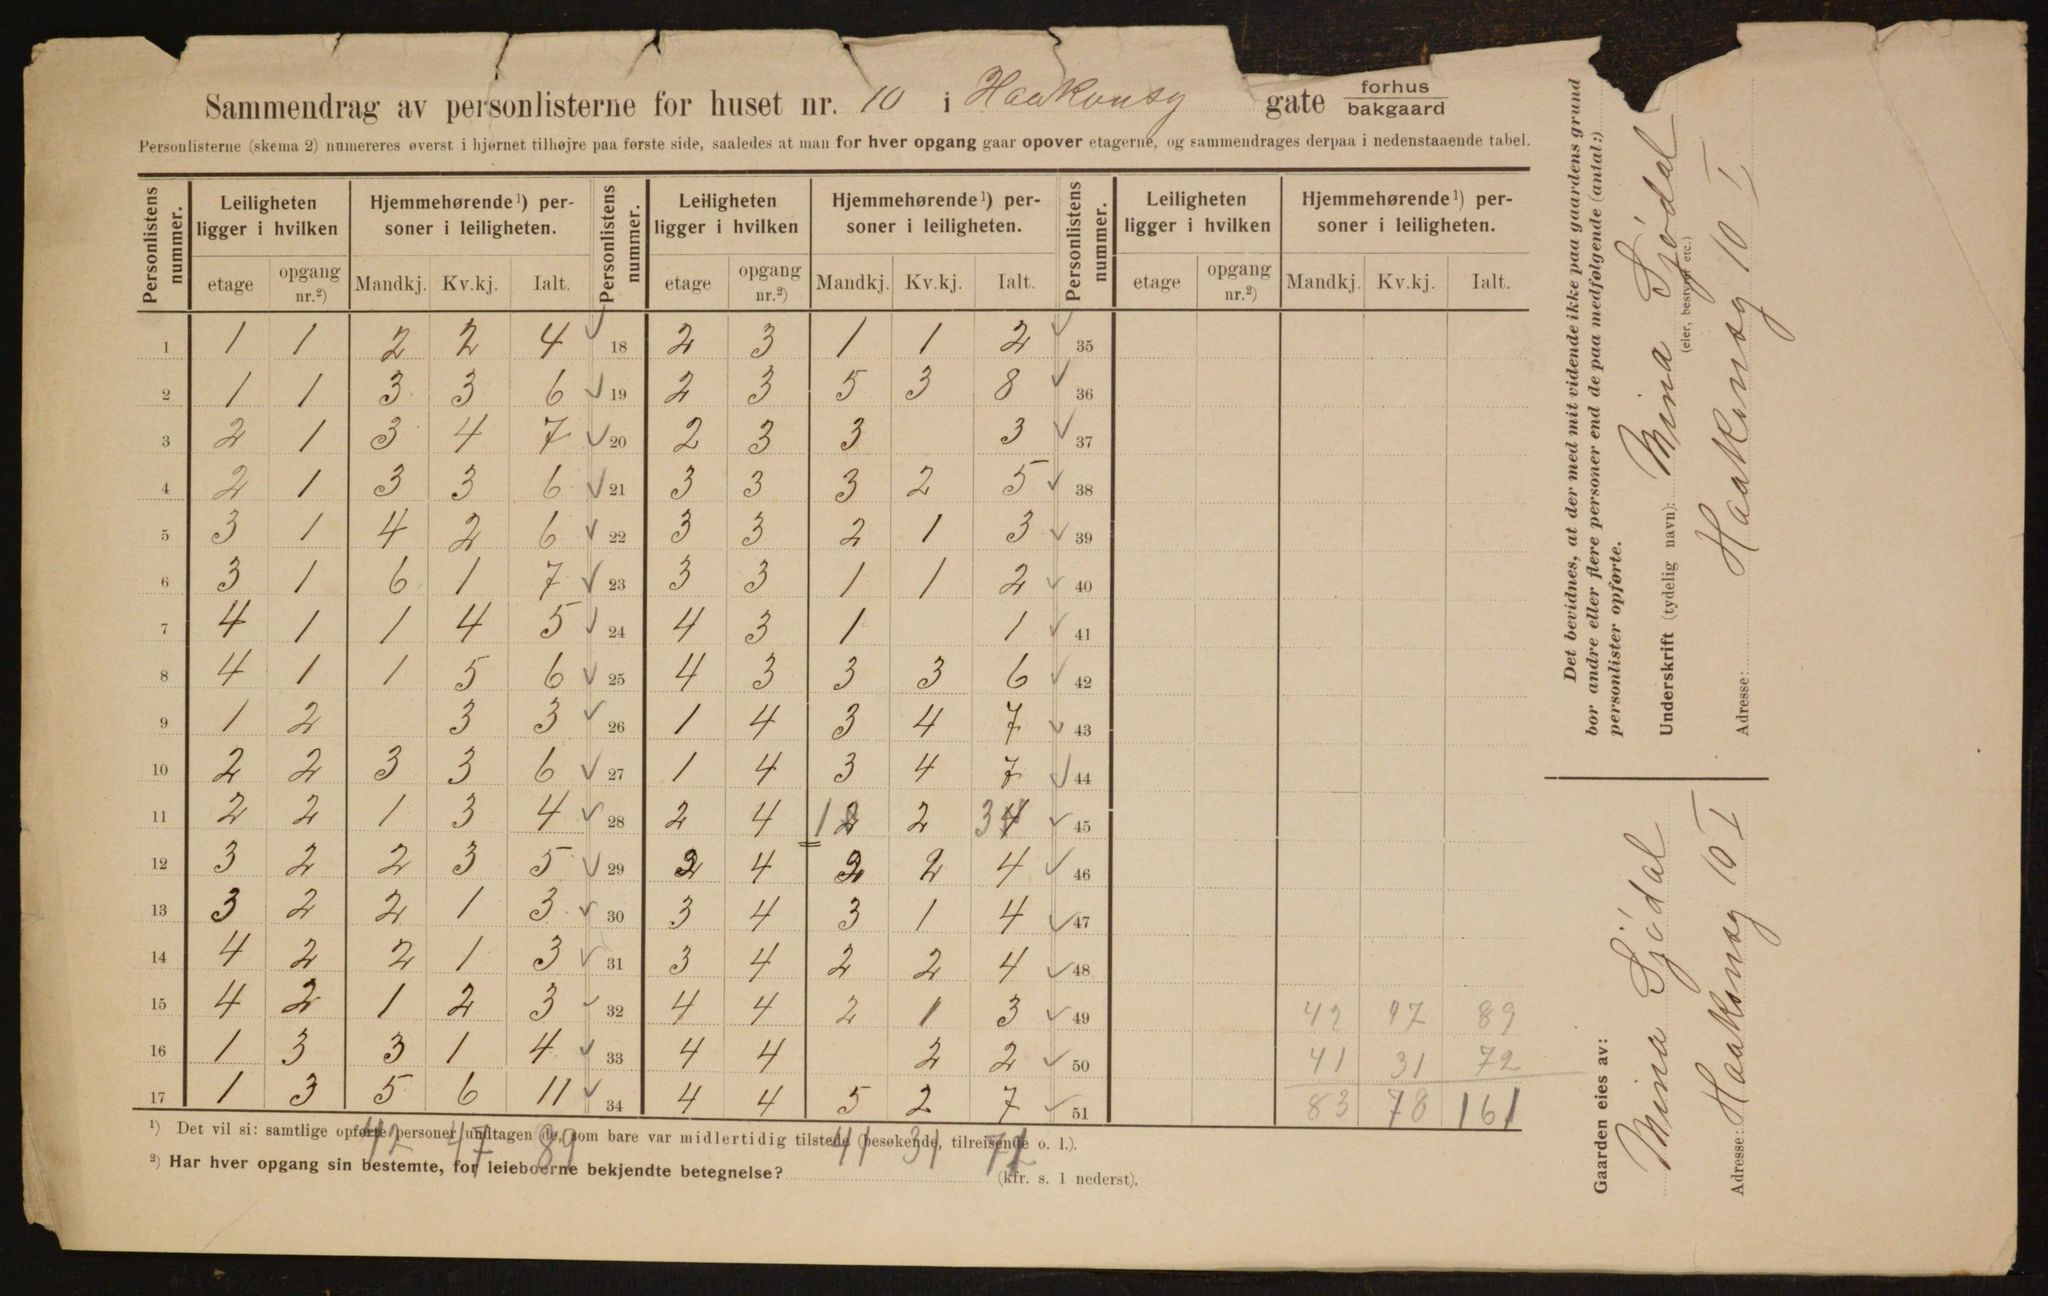 Sammendrag av personlisterne for huset nr. 10 i Haakonsg gate forhus bakgaard
Personlisterne (skema 2) numereres øverst i hjørnet tilhøjre paa første side, saaledes at man for hver opgang gaar opover etagerne, og sammendrages derpaa i nedenstaaende tabel.
Personlistens nummer. Leiligheten ligger i hvilken Hjemmehørende¹) personer i leiligheten. Personlistens nummer. Leiligheten ligger i hvilken Hjemmehørende¹) personer i leiligheten. Personlistens nummer. Leiligheten ligger i hvilken Hjemmehørende¹) personer i leiligheten.
etage opgang nr.²) Mandkj. Kv.kj. Ialt. etage opgang nr.²) Mandkj. Kv.kj. Ialt. etage opgang nr.²) Mandkj. Kv.kj. Ialt.
1 1 1 2 2 4 ✓ 18 2 3 1 1 2 ✓ 35
2 1 1 3 3 6 ✓ 19 2 3 5 3 8 ✓ 36
3 2 1 3 4 7 ✓ 20 2 3 3 3 ✓ 37
4 2 1 3 3 6 ✓ 21 3 3 3 2 5 ✓ 38
5 3 1 4 2 6 ✓ 22 3 3 2 1 3 ✓ 39
6 3 1 6 1 7 ✓ 23 3 3 1 1 2 ✓ 40
7 4 1 1 4 5 ✓ 24 4 3 1 1 ✓ 41
8 4 1 1 5 6 ✓ 25 4 3 3 3 6 ✓ 42
9 1 2 3 3 ✓ 26 1 4 3 4 7 ✓ 43
10 2 2 3 3 6 ✓ 27 1 4 3 4 7 ✓ 44
11 2 2 1 3 4 ✓ 28 2 4 1 2 2 3 4 ✓ 45
12 3 2 2 3 5 ✓ 29 2 4 2 2 4 ✓ 46
13 3 2 2 1 3 ✓ 30 3 4 3 1 4 ✓ 47
14 4 2 2 1 3 ✓ 31 3 4 2 2 4 ✓ 48
15 4 2 1 2 3 ✓ 32 4 4 2 1 3 ✓ 49 42 47 89
16 1 3 3 1 4 ✓ 33 4 4 2 2 ✓ 50 41 31 72
17 1 3 5 6 11 ✓ 34 4 4 5 2 7 ✓ 51 83 78 161
42 47 89 41 31 72
¹) Det vil si: samtlige opførte personer undtagen de, som bare var midlertidig tilstede (besøkende, tilreisende o. l.).
²) Har hver opgang sin bestemte, for leieboerne bekjendte betegnelse?
(kfr. s. 1 nederst).
Det bevidnes, at der med mit vidende ikke paa gaardens grund
bor andre eller flere personer end de paa medfølgende (antal:)
personlister opførte.
Underskrift (tydelig navn): Mina Sjödal
(eier, bestyrer etc.)
Adresse: Haakonsg 10 I
Gaarden eies av: Mina Sjödal
Adresse: Haakonsg 10 I